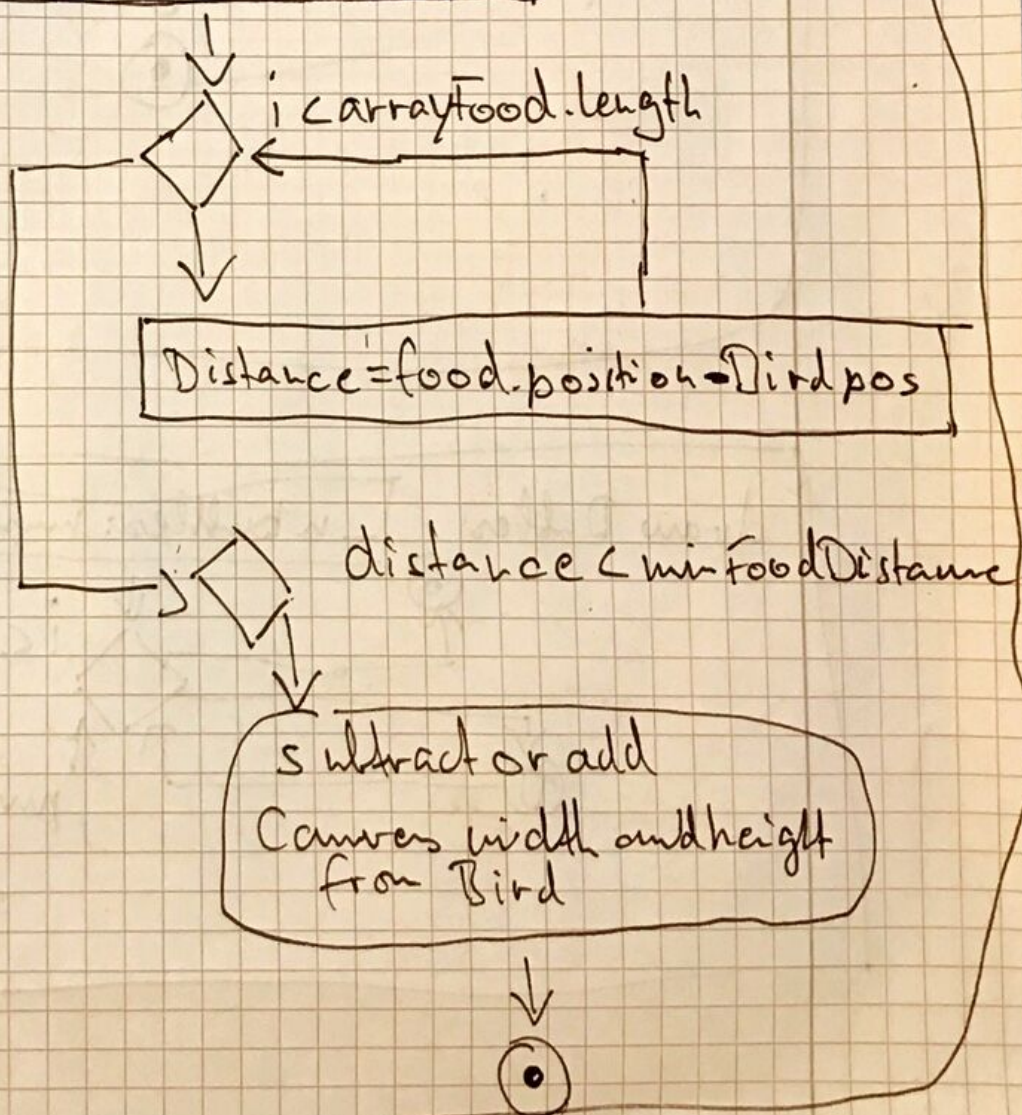 i < arrayFood.length
Distance = food.position - Bird pos
distance < minFoodDistance
subtract or add
Canvas width and height
from Bird